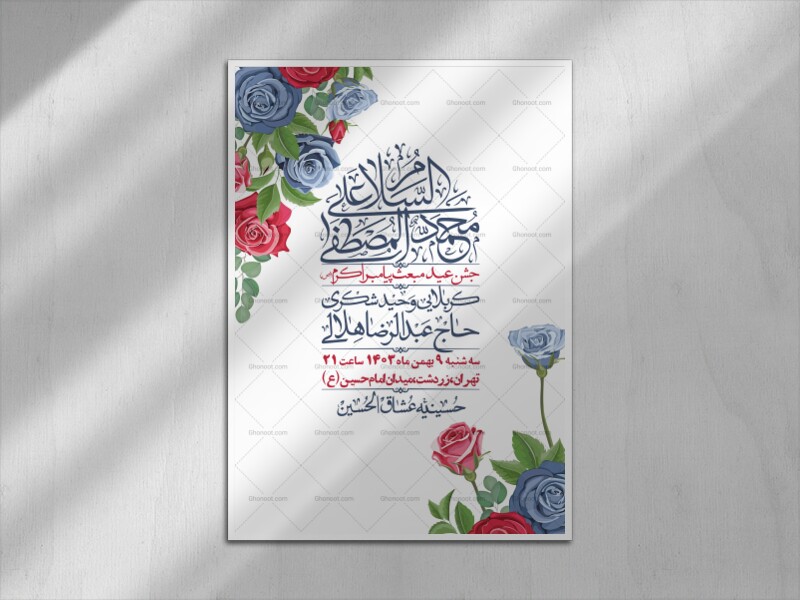 السَّلامُ عَلی
مُحَمَّدٍ المُصطَفی
جشن عید مبعث پیامبر اکرم(ص)
کربلایی وحید شکری
حاج عبدالرضا هلالی
سه شنبه ۹ بهمن ماه ۱۴۰۳ ساعت ۲۱
تهران، زردشت، میدان امام حسین (ع)
حُسینیّه عُشّاقُ الحُسین
Ghonoot.com